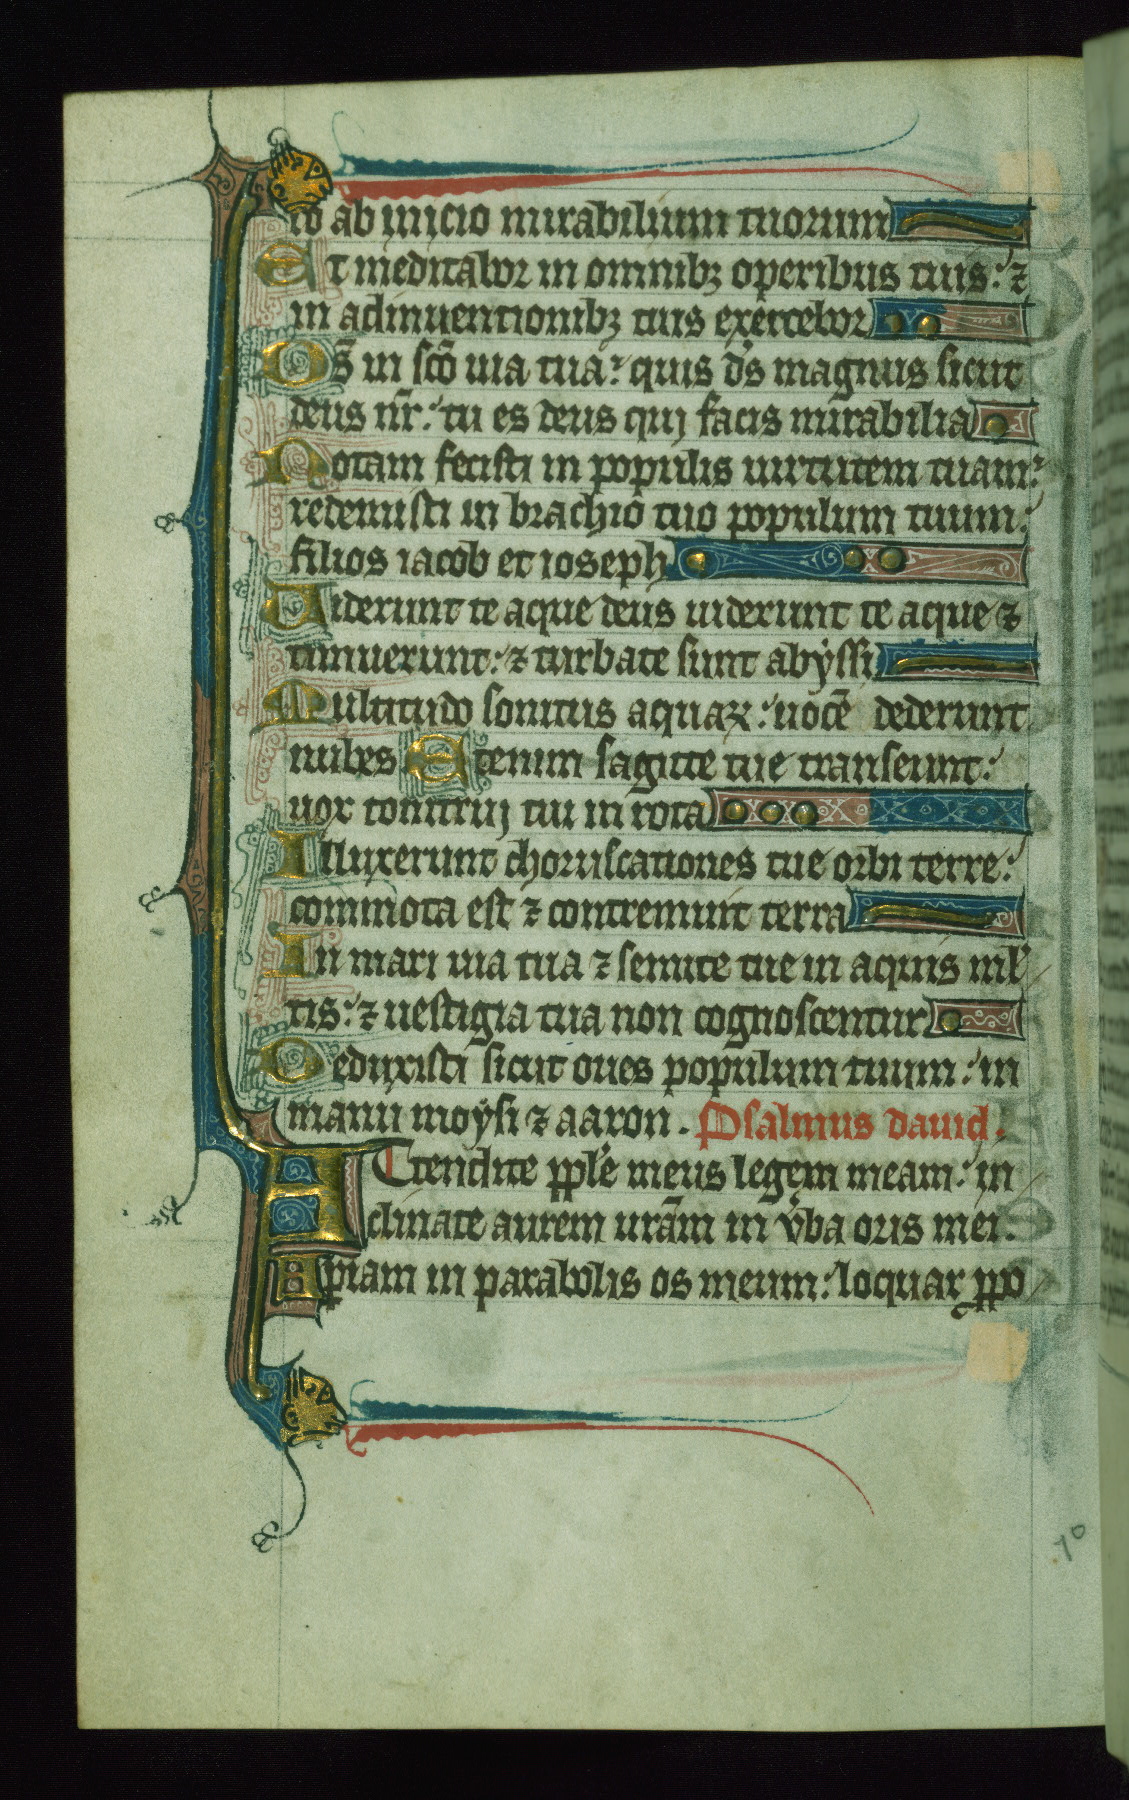 io ab inicio mirabilium tuorum
Et meditabor in omnibꝫ operibus tuis: ⁊
in adinuentionibꝫ tuis exercebor
Ds̄ in sc̄o uia tua: quis d̄s magnus sicut
deus nr̄: tu es deus qui facis mirabilia
Notam fecisti in populis uirtutem tuam:
redemisti in brachio tuo populum tuum:
filios iacob et ioseph
Uiderunt te aque deus uiderunt te aque ⁊
timuerunt: ⁊ turbate sunt abyssi
Multitudo sonitus aquaꝝ: uocē dederunt
nubes Etenim sagitte tue transeunt:
uox tonitrui tui in rota
Illuxerunt choruscationes tue orbi terre:
commota est ⁊ contremuit terra
In mari uia tua ⁊ semite tue in aquis ml'
tis: ⁊ uestigia tua non cognoscentur
Deduxisti sicut oues populum tuum: in
manu moysi ⁊ aaron. Psalmus dauid.
ATtendite pple meus legem meam: in
clinate aurem urām in uba oris mei.
Apiam in parabolis os meum: loquar ppo
70